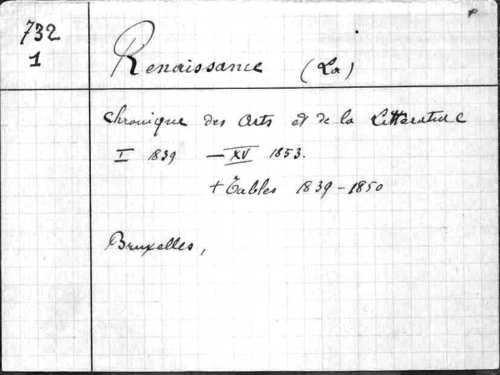 732
1
Renaissance (La)
Chronique des Arts et de la Littérature
I 1839 — XV 1853.
+ Tables 1839-1850
Bruxelles,